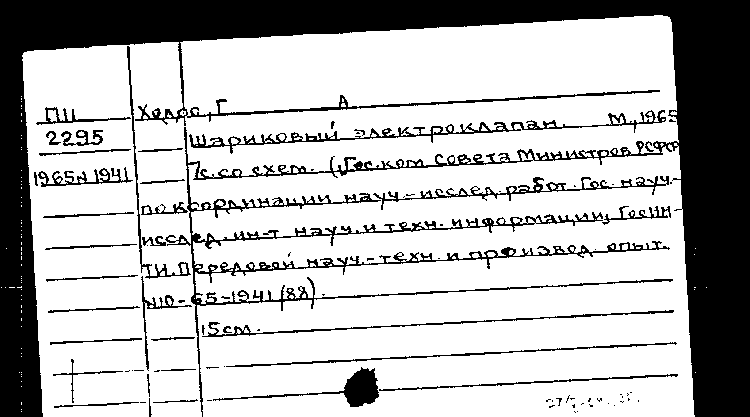 ПII Ходос, Г А
2295 Шариковый электроклапан. М, 1965
1965 N 1941 7с. со схем. (Гос. ком Совета Министров РСФСР
по координации науч.-исслед. работ. Гос. науч.-
исслед. ин-т науч. и техн. информации; ГосИН-
ТИ. Передовой науч.-техн и производ. опыт.
N10-65-1941/88).
15см.